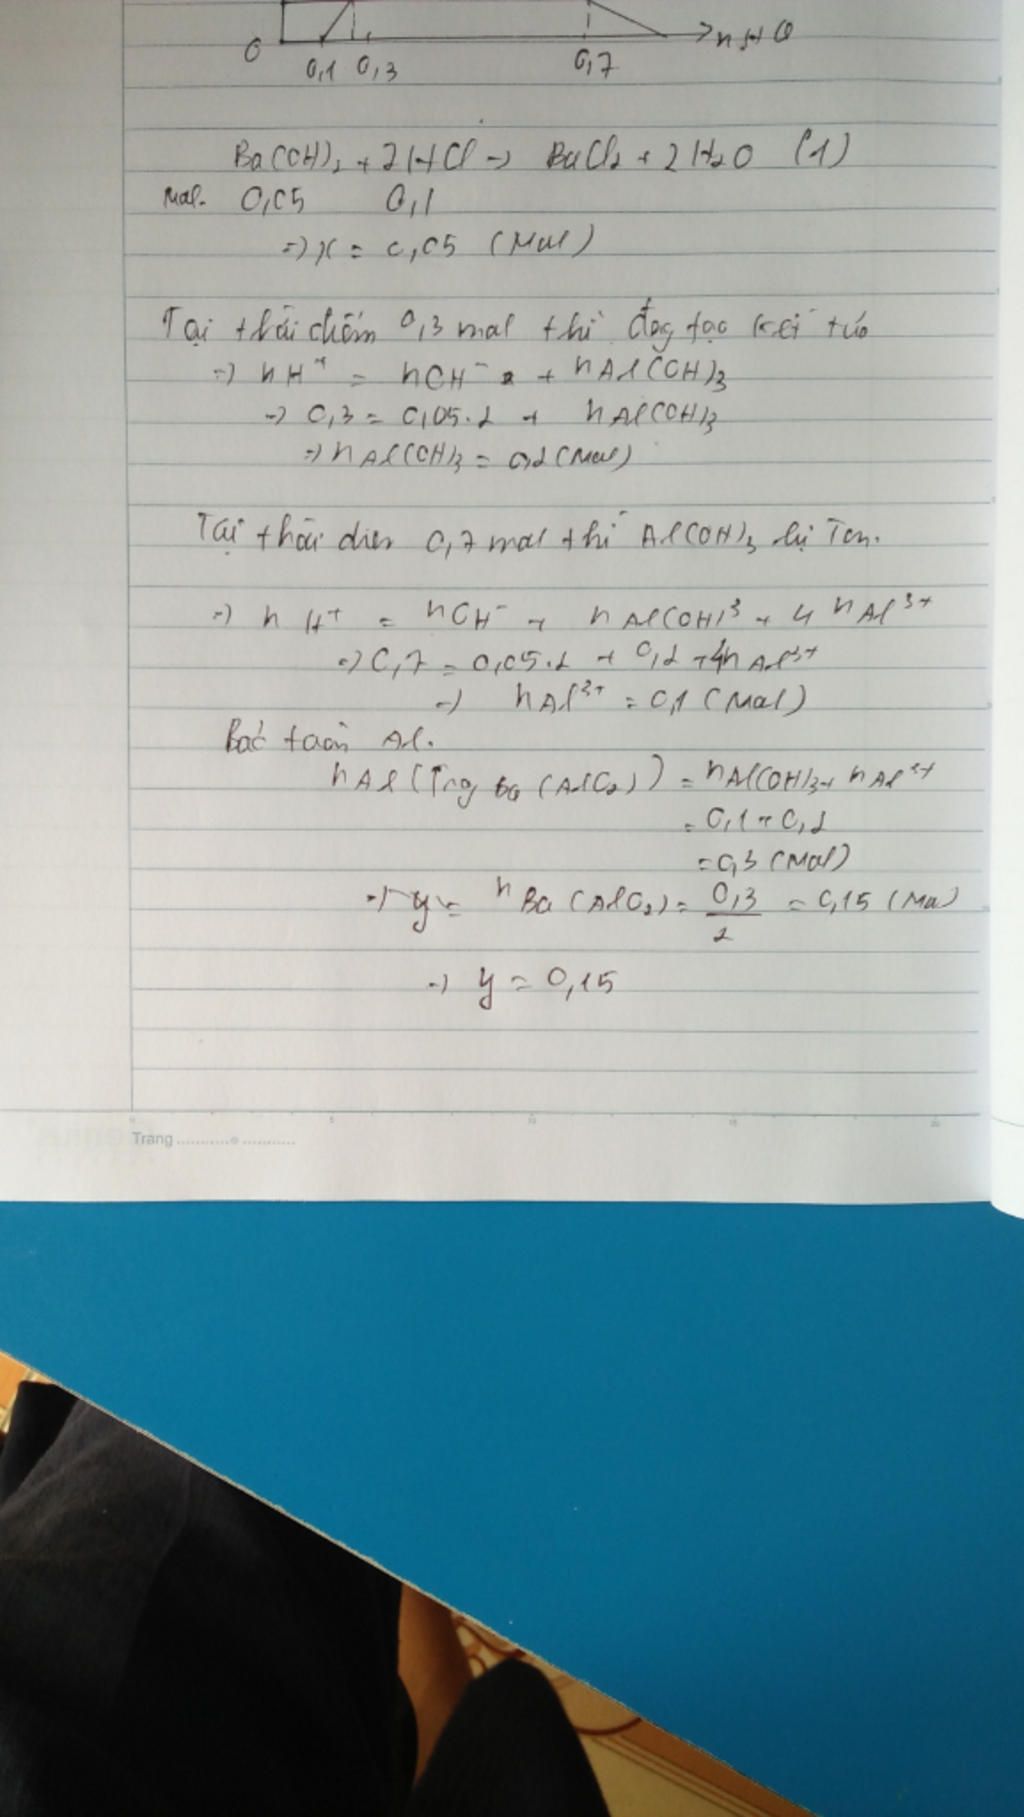 0 0,1 0,3 0,7 n H+
Ba(OH)₂ + 2HCl → BaCl₂ + 2H₂O (1)
Mol. 0,05 0,1
=> x = 0,05 (Mol)
Tại thời điểm 0,3 mol thì đag tạo kết tủa
=> nH⁺ = nOH⁻ + nAl(OH)3
=> 0,3 = 0,05.2 + nAl(OH)3
=> nAl(OH)3 = 0,2 (Mol)
Tại thời điểm 0,7 mol thì Al(OH)3 bị Tan.
=> n H⁺ = nOH⁻ + nAl(OH)3 + 4 nAl³⁺
=> 0,7 = 0,05.2 + 0,2 + 4nAl³⁺
=> nAl³⁺ = 0,1 (Mol)
Bảo toàn Al.
nAl (Trog Ba(AlO₂)) = nAl(OH)3 + nAl³⁺
= 0,1 + 0,2
= 0,3 (Mol)
=> y = nBa(AlO₂) = 0,3/2 = 0,15 (Mol)
=> y = 0,15
Trang